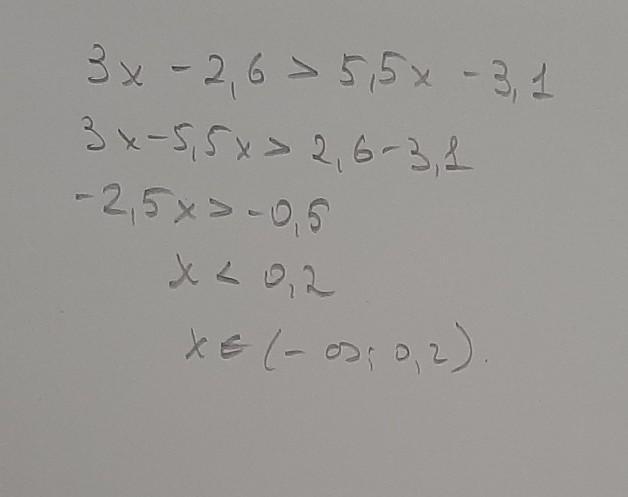 3x - 2,6 > 5,5x - 3,1
3x - 5,5x > 2,6 - 3,1
-2,5x > -0,5
x < 0,2
x ∈ (- ∞; 0,2).